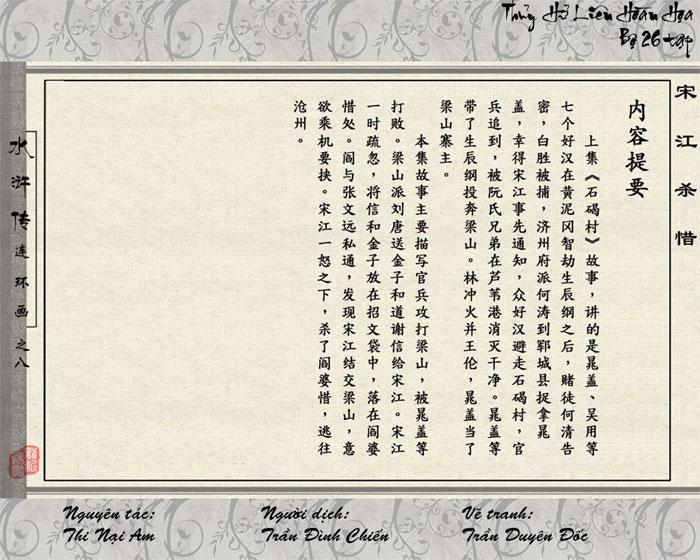 Thủy Hử Liên Hoàn Họa
Bộ 26 tập
宋江杀惜
内容提要
上集《石碣村》故事，讲的是晁盖、吴用等
七个好汉在黄泥冈智劫生辰纲之后，赌徒何清告
密，白胜被捕，济州府派何涛到郓城县捉拿晁
盖，幸得宋江事先通知，众好汉避走石碣村，官
兵追到，被阮氏兄弟在芦苇港消灭干净。晁盖等
带了生辰纲投奔梁山。林冲火并王伦，晁盖当了
梁山寨主。
本集故事主要描写官兵攻打梁山，被晁盖等
打败。梁山派刘唐送金子和道谢信给宋江。宋江
一时疏忽，将信和金子放在招文袋中，落在阎婆
惜处。阎与张文远私通，发现宋江结交梁山，意
欲乘机要挟。宋江一怒之下，杀了阎婆惜，逃往
沧州。
水浒传连环画之八
Nguyên tác:
Thi Nại Am
Người dịch:
Trần Đình Chiến
Vẽ tranh:
Trần Duyên Đốc